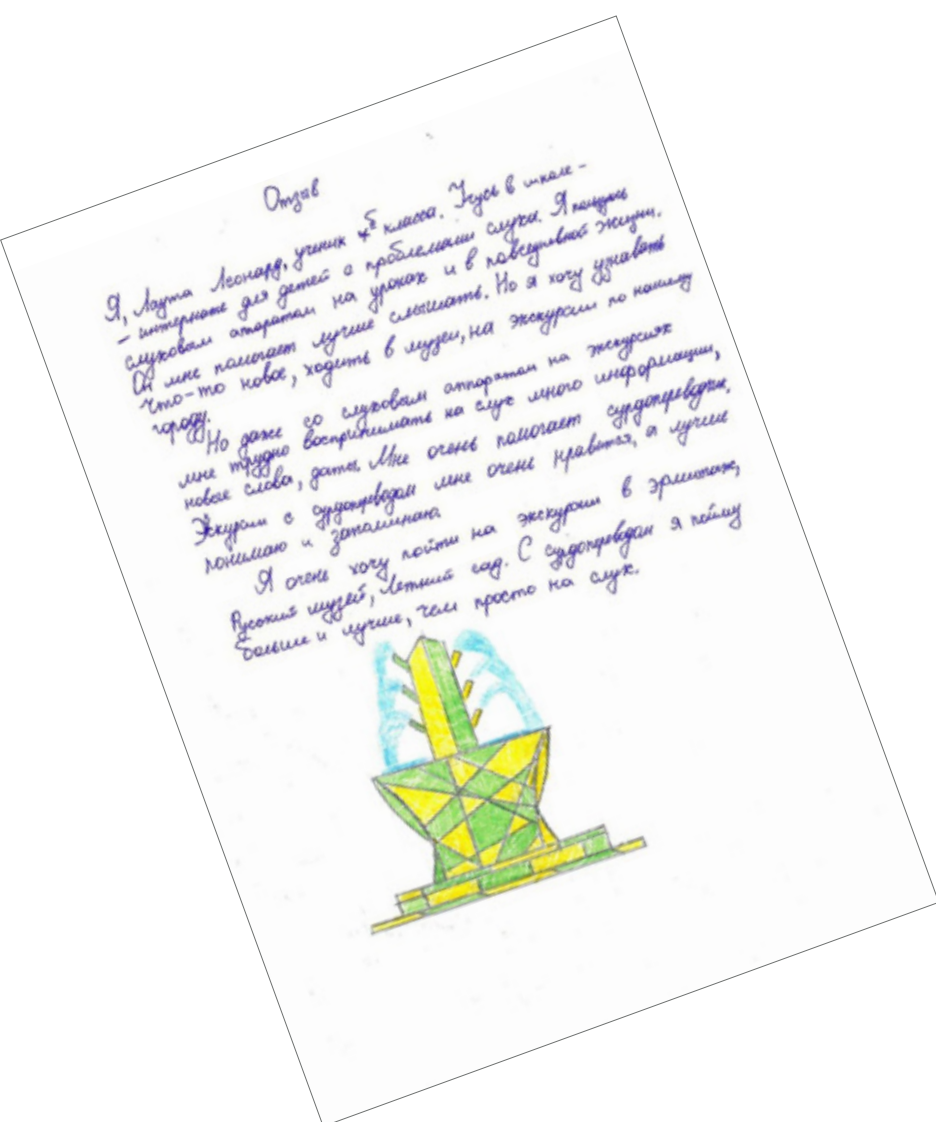 Отзыв
Я, Лаута Леонард, ученик 4б класса. Учусь в школе-
- интернате для детей с проблемами слуха. Я пользуюсь
слуховым апаратом на уроках и в повседневной жизни.
Он мне помогает лучше слышать. Но я хочу узнавать
что-то новое, ходить в музеи, на экскурсии по нашему
городу.
Но даже со слуховым аппаратом на экскурсиях
мне трудно воспринимать на слух много информации,
новые слова, даты. Мне очень помогает сурдопереводчик.
Экскурсии с сурдопереводом мне очень нравятся, я лучше
понимаю и запоминаю.
Я очень хочу пойти на экскурсии в эрмитаж,
Русский музей, Летний сад. С сурдопереводом я пойму
больше и лучше, чем просто на слух.